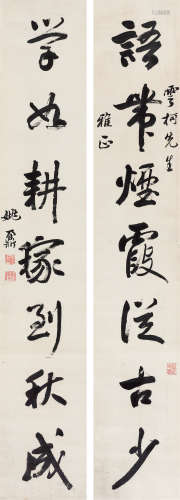 語帶煙霞從古少
雲柯先生
雅正
学如耕稼到秋成
姚鼐